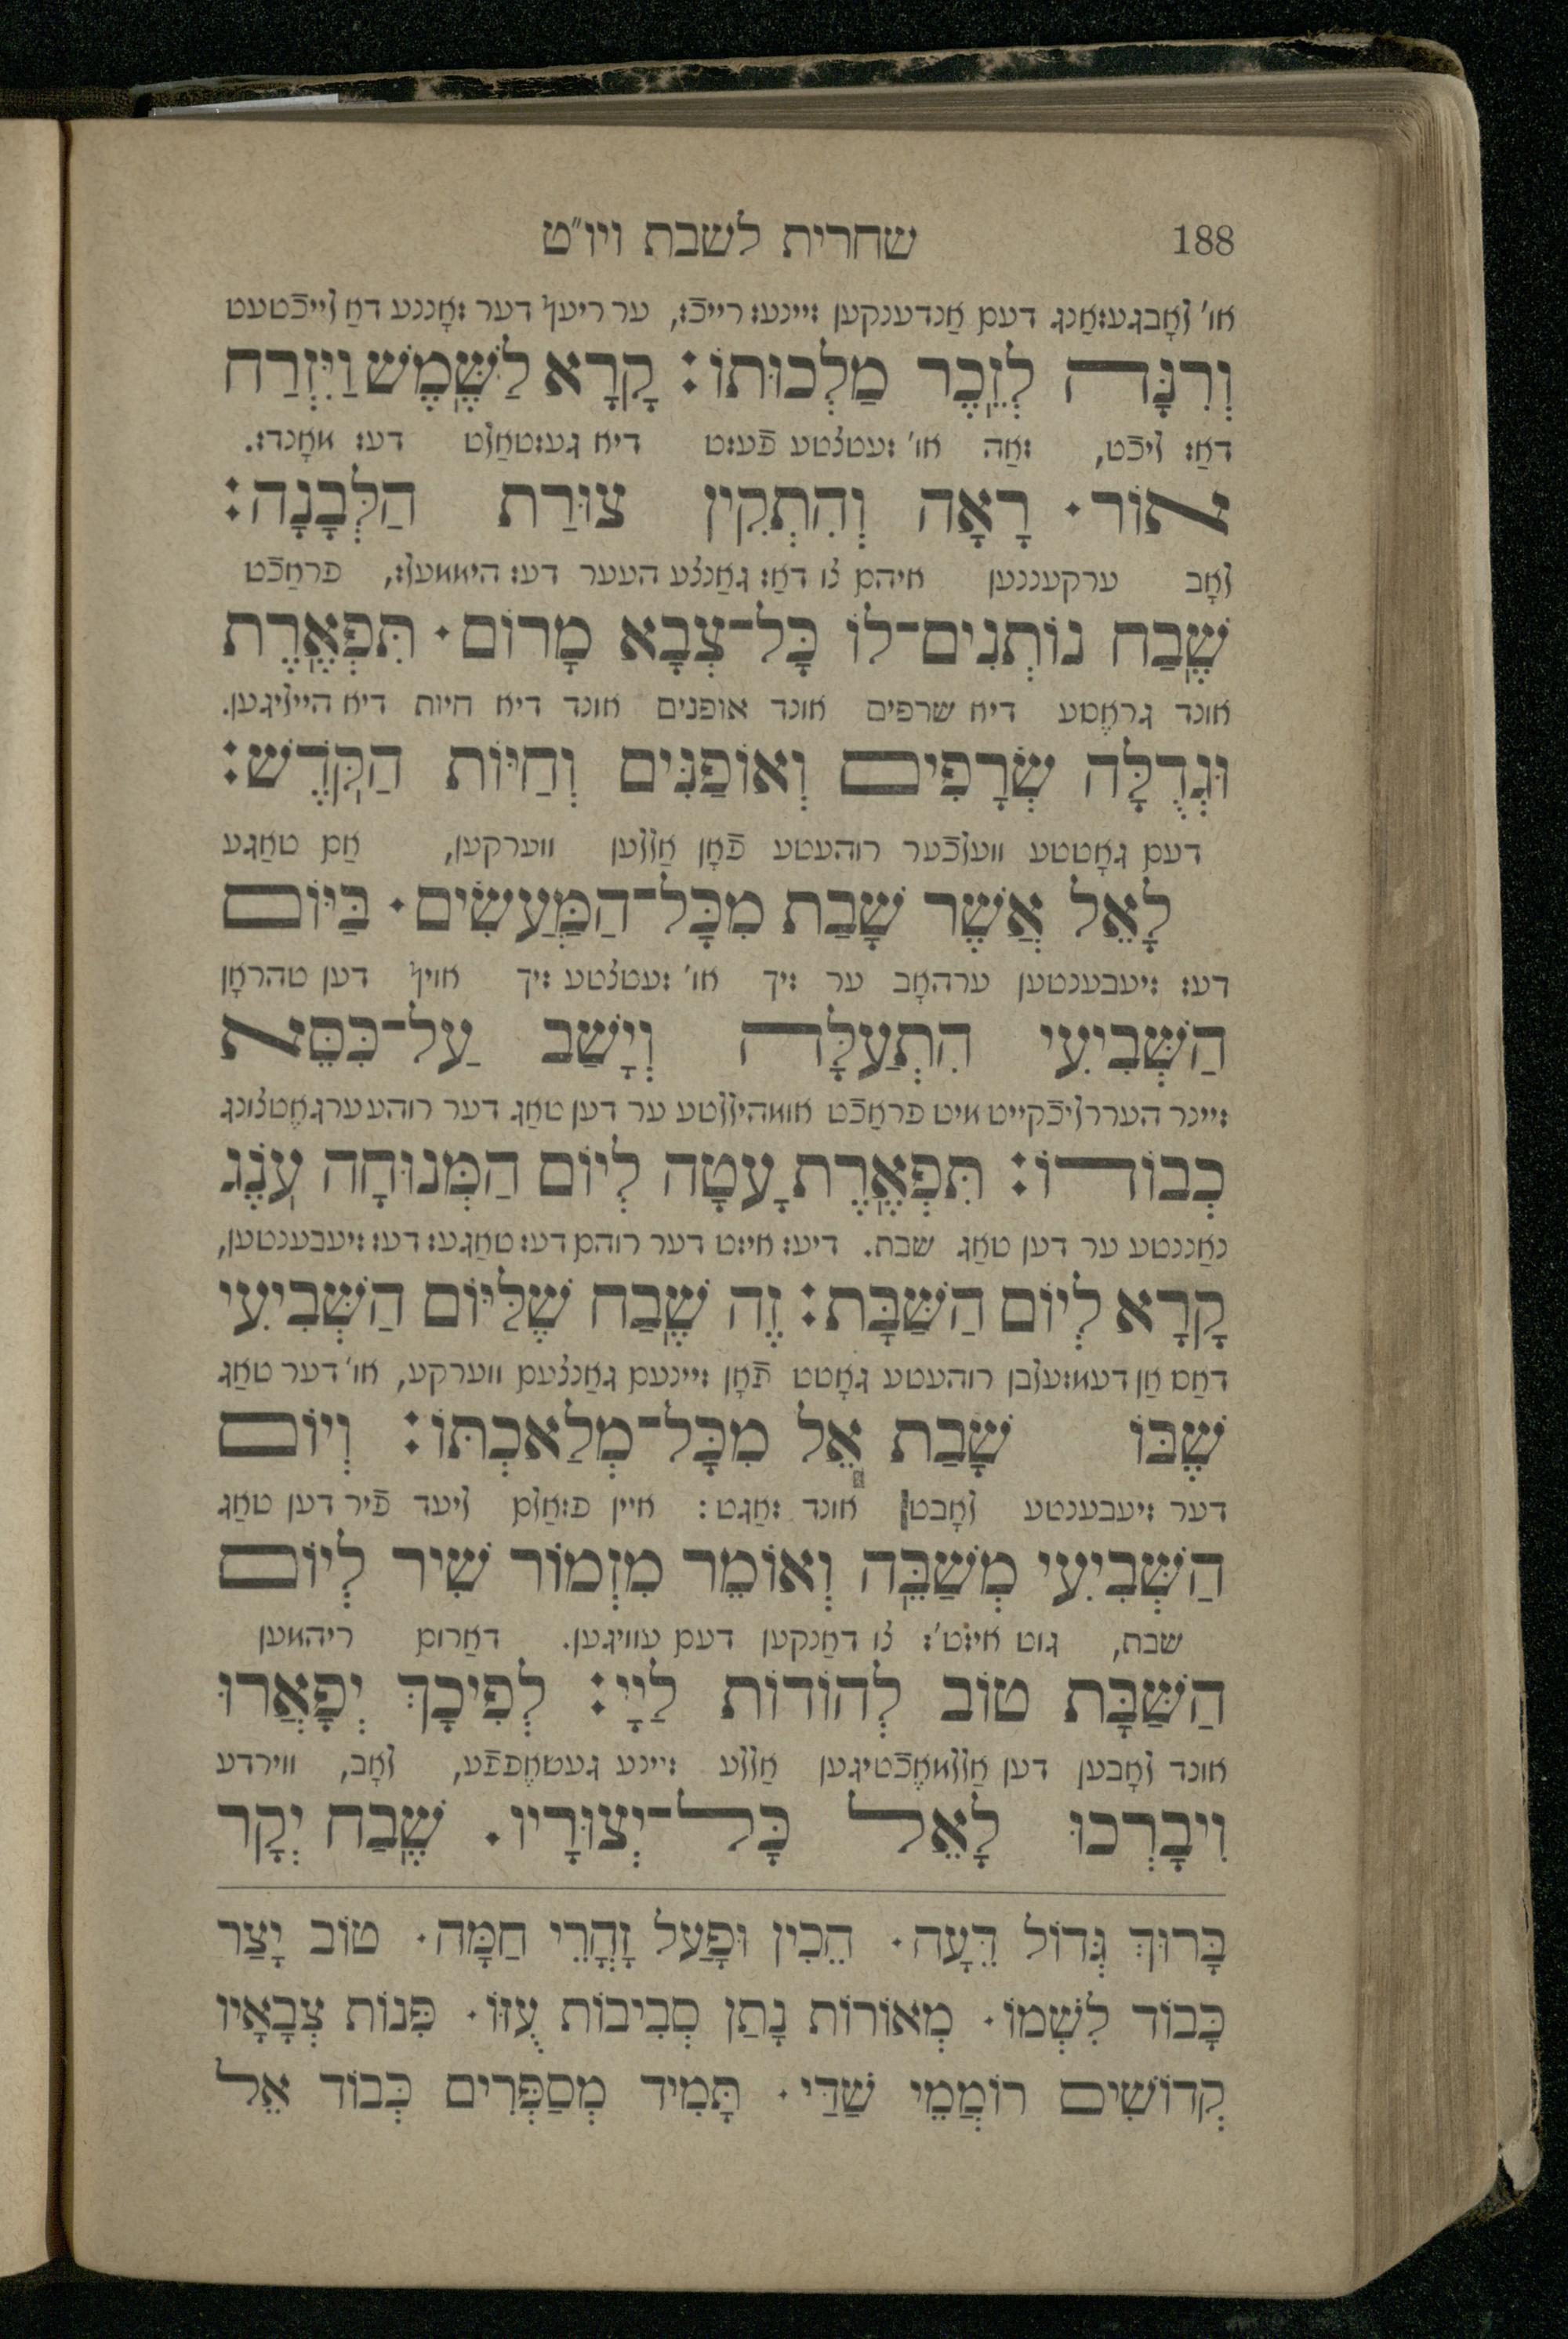 188 שחרית לשבת ויו״ט
או' לאָבגעזאַנג דעם אַנדענקען זיינעז רייכֿז, ער ריעף דער זאָננע דאַ לייכֿטעט
וְרִנָּה לְזֵכֶר מַלְכוּתוֹ: קָרָא לַשֶּׁמֶשׁ וַיִּזְרַח
דאַז ליכֿט, זאַה או' זעטצטע פֿעזט דיא געזטאַלט דעז מאָנדז.
אוֹר· רָאָה וְהִתְקִין צוּרַת הַלְּבָנָה:
לאָב ערקעננען איהם צו דאַז גאַנצע העער דעז היממעלז, פראַכֿט
שֶׁבַח נוֹתְנִים־לוֹ כָּל־צְבָא מָרוֹם· תִּפְאֶרֶת
אונד גראָסע דיא שרפים אונד אופנים אונד דיא חיות דיא הייליגען.
וּגְדֻלָּה שְׂרָפִים וְאוֹפַנִּים וְחַיּוֹת הַקֹּדֶשׁ:
דעם גאָטטע וועלכֿער רוהעטע פֿאָן אַללען ווערקען, אַם טאַגע
לָאֵל אֲשֶׁר שָׁבַת מִכָּל־הַמַּעֲשִׂים· בַּיּוֹם
דעז זיעבענטען ערהאָב ער זיך או' זעטצטע זיך אויף דען טהראָן
הַשְּׁבִיעִי הִתְעַלָּה וְיָשַׁב עַל־כִּסֵּא
זיינר הערר־ליכֿקייט מיט פראַכֿט אומהיללטע ער דען טאַג דער רוהע ערגאָטצונג
כְבוֹדוֹ: תִּפְאֶרֶת עָטָה לְיוֹם הַמְּנוּחָה עֹנֶג
נאַננטע ער דען טאַג שבת. דיעז איזט דער רוהם דעז טאַגעז דעז זיעבענטען,
קָרָא לְיוֹם הַשַּׁבָּת: זֶה שֶׁבַח שֶׁלַּיּוֹם הַשְּׁבִיעִי
דאַס אַן דעמזעלבן רוהעטע גאָטט פֿאָן זיינעם גאַנצעם ווערקע, או' דער טאַג
שֶׁבּוֹ שָׁבַת אֵל מִכָּל־מְלַאכְתּוֹ: וְיוֹם
דער זיעבענטע לאָבט אונד זאַגט: איין פזאַלם ליעד פֿיר דען טאַג
הַשְּׁבִיעִי מְשַׁבֵּחַ וְאוֹמֵר מִזְמוֹר שִׁיר לְיוֹם
שבת, גוט איזט'ז צו דאַנקען דעם עוויגען. דאַרום ריהמען
הַשַּׁבָּת טוֹב לְהוֹדוֹת לַייָ: לְפִיכָךְ יְפָאֲרוּ
אונד לאָבען דען אַללמאָכֿטיגען אַללע זיינע געשאָפּפֿע, לאָב, ווירדע
וִיבָרְכוּ לָאֵל כָּל־יְצוּרָיו. שֶׁבַח יְקָר
בָּרוּךְ גְּדוֹל דֵּעָה· הֵכִין וּפָעַל זָהֳרֵי חַמָּה· טוֹב יָצַר
כָּבוֹד לִשְׁמוֹ· מְאוֹרוֹת נָתַן סְבִיבוֹת עֻזּוֹ· פִּנּוֹת צְבָאָיו
קְדוֹשִׁים רוֹמְמֵי שַׁדַּי· תָּמִיד מְסַפְּרִים כְּבוֹד אֵל